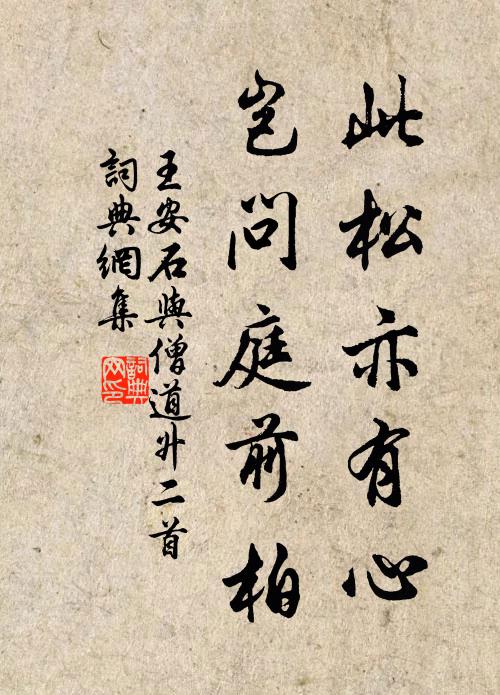 此松亦有心
豈問庭前柏
王安石與僧道升二首
詞典網集
詞典
网印